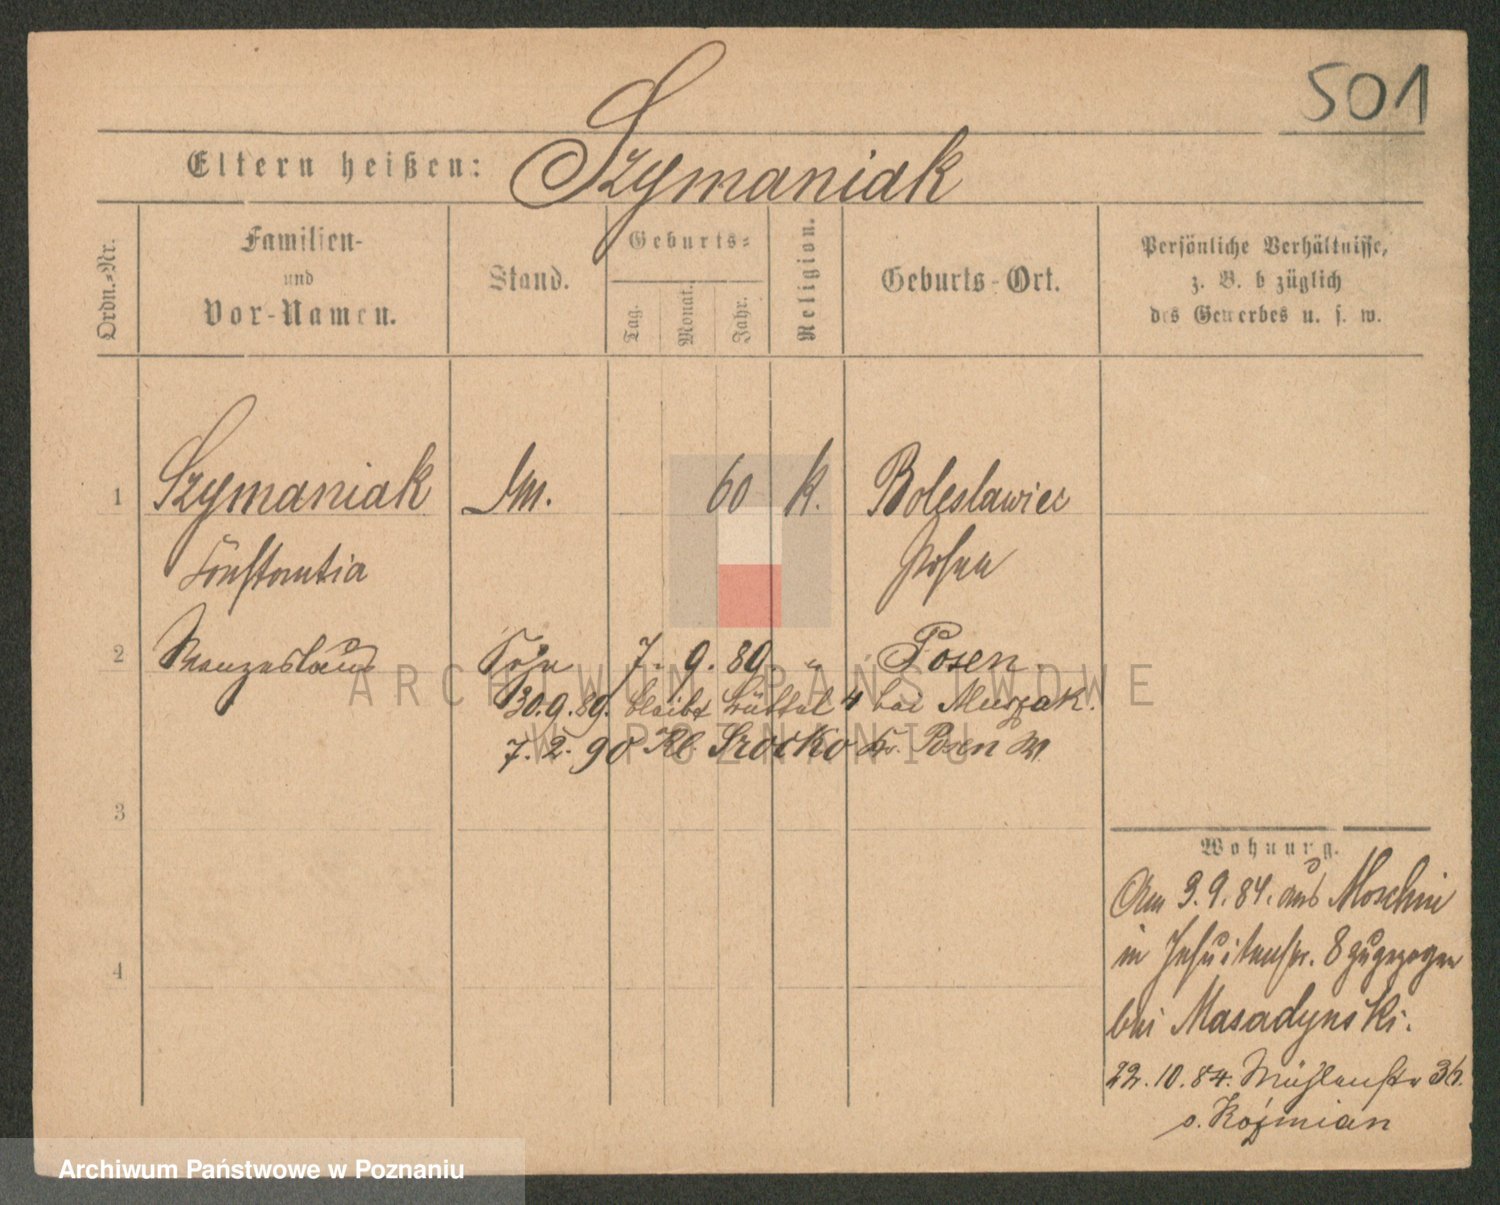 501
Eltern heißen: Szymaniak
Ordn.-Nr.
Familien-
und
Vor-Namen.
Stand.
Geburts-
Tag.
Monat.
Jahr.
Religion.
Geburts-Ort.
Persönliche Verhältnisse,
z. B. b züglich
des Gewerbes u. s. w.
1 Szymaniak 60 k. Boleslawiec
Constantia Posen
2 Wenzeslaus Sohn 7. 9. 89. " Posen.
30.9.89. bleibt 4 bei
7. 2. 90 Kl. Srocko Kr. Posen W
3
4
Wohnung.
Am 3. 9. 84. aus Moschin
in Jesuitenstr. 8 zugezogen
bei Masadynski.
22. 10. 84. Mühlenstr
v. Koźmian
ARCHIWUM PAŃSTWOWE
W POZNANIU
Archiwum Państwowe w Poznaniu